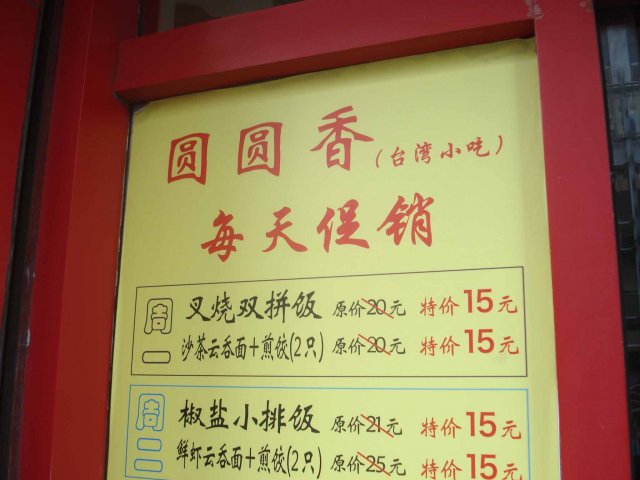 圆圆香(台湾小吃)
每天促销
周一
叉烧双拼饭 原价20元 特价15元
沙茶云吞面+煎饺(2只) 原价20元 特价15元
周二
椒盐小排饭 原价21元 特价15元
鲜虾云吞面+煎饺(2只) 原价25元 特价15元